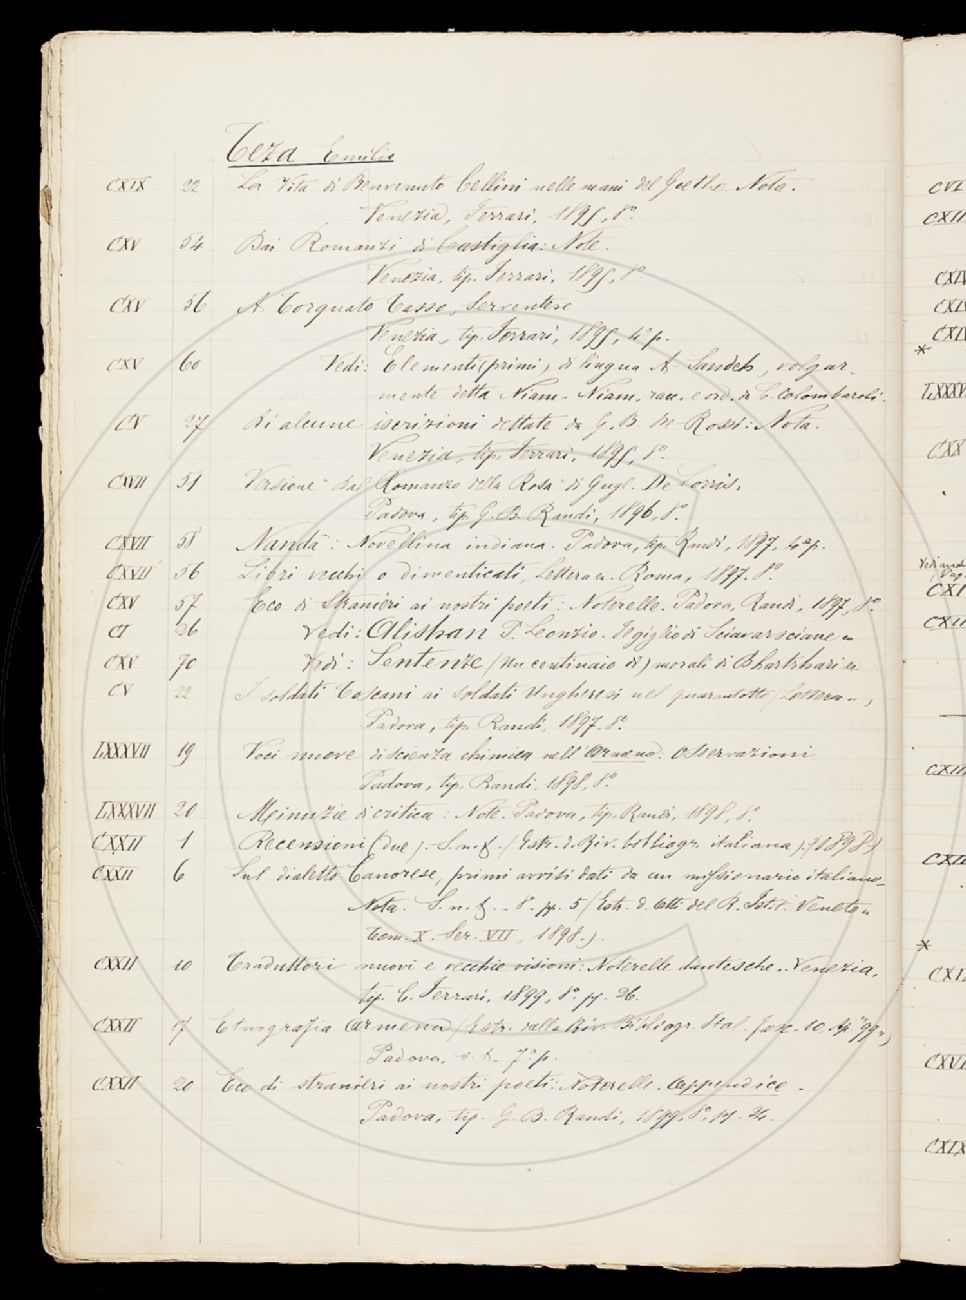 Teza Emilio
CXIX 22 La Vita di Benvenuto Cellini nelle mani del Goethe. Nota.
Venezia, Ferrari, 1895, 8°.
CXV 54 Dai Romanzi di Castiglia: Note.
Venezia, tip. Ferrari, 1895, 8°
CXV 56 A Torquato Tasso, Serventese
Venezia, tip. Ferrari, 1895, 4° p.
CXV 60 Vedi: Elementi (primi) di lingua A-Sandeh, volgar-
mente detta Niam-Niam, racc. e ord. da G. Colombaroli.
CV 27 Di alcune iscrizioni dettate da G. B. De Rossi: Nota.
Venezia, tip. Ferrari, 1895, 8°.
CXVII 51 Versione dal "Romanzo della Rosa" di Gugl. De Lorris.
Padova, tip. G. B. Randi, 1896, 8°.
CXVII 58 Nandà: Novellina indiana. Padova, tip. Randi, 1897, 4° p.
CXVII 56 Libri vecchi o dimenticati, Lettera a. Roma, 1897. 8°.
CXV 57 Eco di Stranieri ai nostri poeti: Noterelle. Padova, Randi, 1897, 8°.
CI 26 Vedi: Alishan P. Leonzio. Il giglio di Sciavarsciane
CXV 70 Vedi: Sentenze (Un centinaio di) morali di Bhartrhari
CV 22 I soldati Toscani ai soldati Ungheresi nel quarantotto (Lettera..,
Padova, tip. Randi, 1897. 8°.
LXXXVII 19 Voci nuove di scienza chimica nell'armeno. Osservazioni
Padova, tip. Randi, 1898, 8°.
LXXXVII 20 Meinuzie di critica: Note. Padova, tip. Randi, 1898, 8°.
CXXII 1 Recensioni (due). S.n.t. (Estr. d. Riv. bibliogr. italiana). (1898)
CXXII 6 Sul dialetto Canorese, primi avvisi dati da un missionario italiano.
Nota. S.n.t. 8°. pp. 5 (Estr. d. Atti del R. Istit. Veneto
Tom. X. Ser. VII, 1898.).
CXXII 10 Traduttori nuovi e vecchie visioni: Noterelle dantesche. Venezia,
tip. C. Ferrari, 1899, 8°. pp. 26.
CXXII 17 Etnografia armena (Estr. dalla Riv. Bibliogr. Ital. fasc. 10. Ap. "99")
Padova, 7° p.
CXXII 20 Eco di stranieri ai nostri poeti: Noterelle. Appendice.
Padova, tip. G. B. Randi, 1899. 8°. pp. 24.
CVI
CXII
CXIV
*
LXXXV
CXX
Vedi and
CXI
CXII
CXII
CXII
*
CXI
CXVI
CXIX